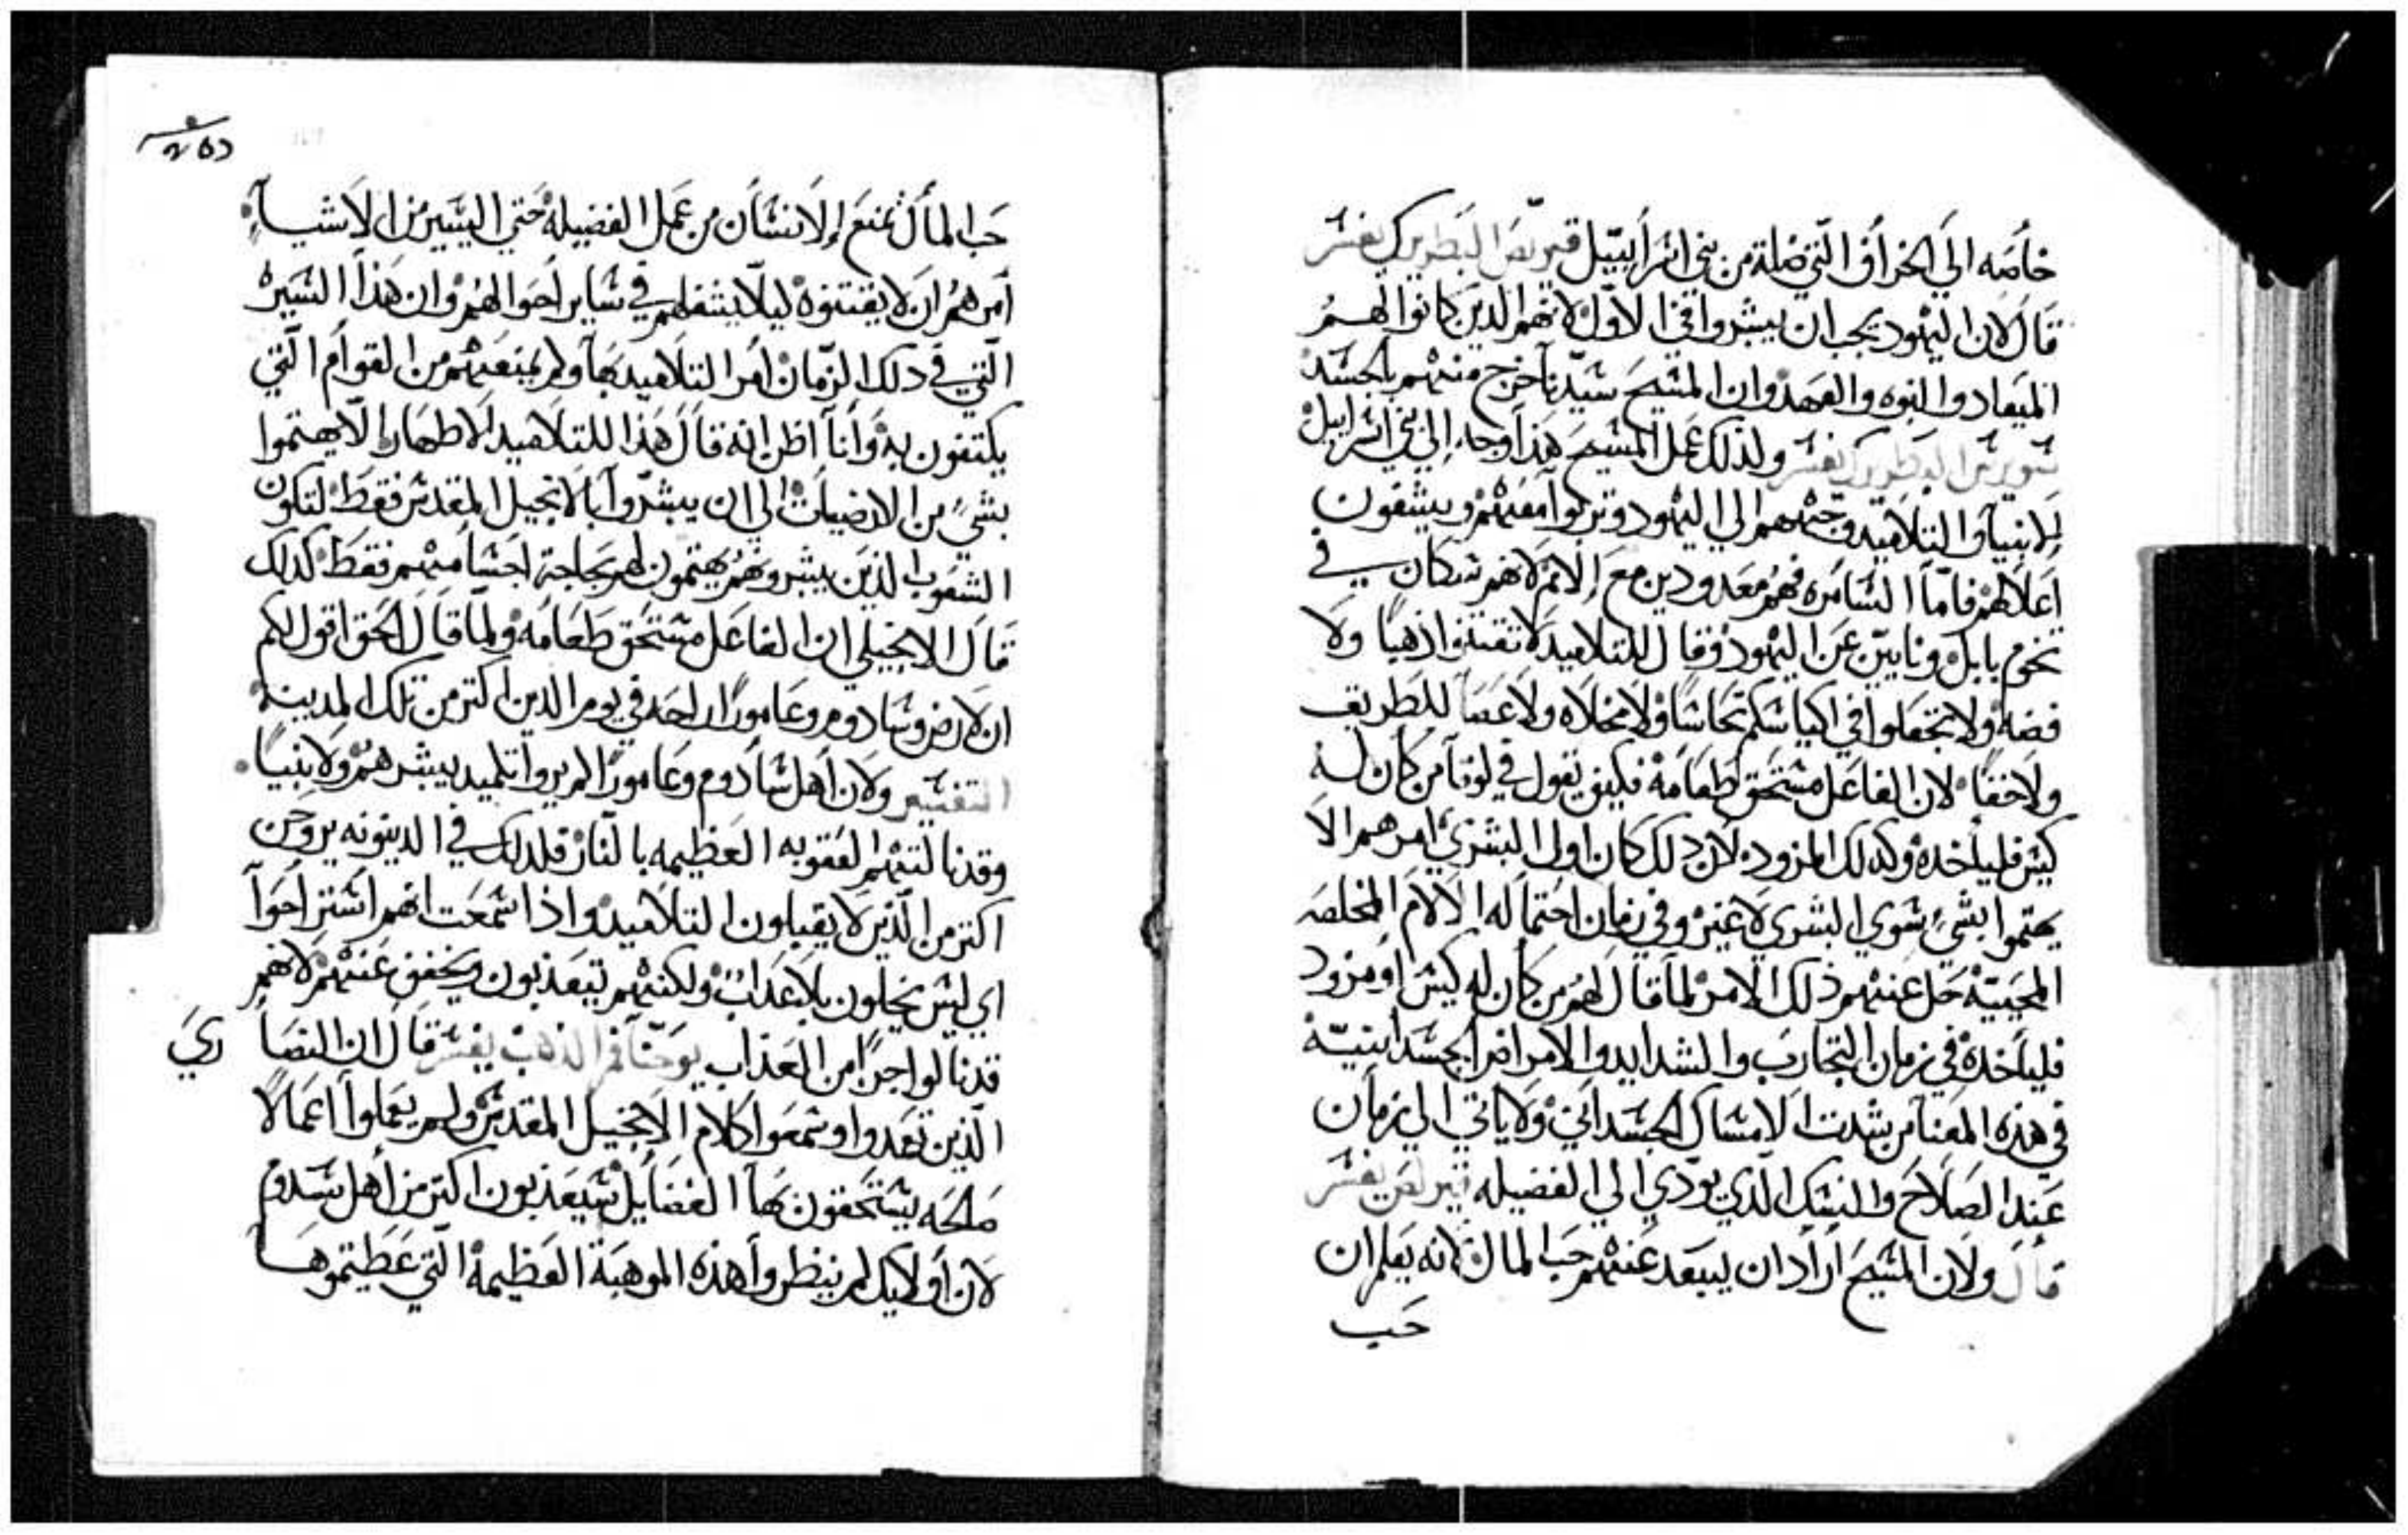 خاصه الي الخراف التي ضلة من بني اسراييل قيرلص البطريرك يفسر
قال لان اليهود يجب ان يبشروا في الاول لانهم الدين كانوا لهم
الميعاد والنبوه والعهد وان المسيح سيدنا خرج منهم بالجسد
سويرس البطريرك يفسر ولذلك عمل المسيح هذا وجاء الي بني اسراييل
للانبيا والتلاميد وجههم الي اليهود وتركوا معهم ويشفون
اعلالهم فاما السامره فهم معدودين مع الامم لانهم سكان في
تخوم بابل ونايين عن اليهود وقال للتلاميد لا تقتنوا ذهبا ولا
فضه ولا تجعلوا في اكياسكم نحاسا ولا مخلاه ولا عصا للطريق
ولا خفا لان الفاعل مستحق طعامه فكيف يقول في لوقا من كان له
كيس فلياخده وكدلك المزود لان دلك كان اول البشري امرهم الا
يهتموا بشي سوي البشري لا غير وفي زمان احتماله الالام المخلصه
المحييه حل عنهم ذلك الامر لما قال لهم من كان له كيس او مزود
فلياخده في زمان التجارب والشدايد والامراض الجسدانيه
في هذه المعنا من شدت الامساك الجسداني ولا ياتي الي زمان
عند الصلاح والنسك الذي يودي الي الفضيله قيرلص يفسر
قال ولان المسيح اراد ان يبعد عنهم حب المال لانه يعلم ان
حب
حب المال تمنع الانسان من عمل الفضيله حتي اليسير من الاشيا
امرهم ان لا يقتنوه ليلا يشغلهم في ساير احوالهم وان هذا السيره
التي في دلك الزمان امر التلاميد بها ولم يمنعهم من القوام التي
يكتفون به وانا اظن انه قال هذا للتلاميد الاطهار الا يهتموا
بشي من الارضيات الي ان يبشروا بالانجيل المقدس فقط لتكون
الشعوب الذين يبشروهم يهتمون لهم بحاجة اجسامهم فقط كذلك
قال الانجيلي ان الفاعل مستحق طعامه ولما قال الحق اقول لكم
ان لارض سادوم وعامورا راحه في يوم الدين اكتر من تلك المدينه
التفسير ولان اهل سادوم وعامورا لم يروا تلميد يبشرهم ولا نبيا
وقد نالتهم العقوبه العظيمه بالنار فلدلك في الدينونه يروحن
اكتر من الذين لا يقبلون التلاميد واذا سمعت انهم استراحوا
اي ليس يخلون بلا عذاب ولكنهم يتعذبون ويخفف عنهم لانهم
قد نالوا جزا من العذاب يوحنا فم الذهب يفسر قال ان النصاري
الذين تعمدوا وسمعوا كلام الانجيل المقدس ولم يعملوا اعمالا
صالحه يستحقون بها الفضايل سيعذبون اكتر من اهل سدوم
لان اولايك لم ينظروا هذه الموهبة العظيمة التي عطيتموها